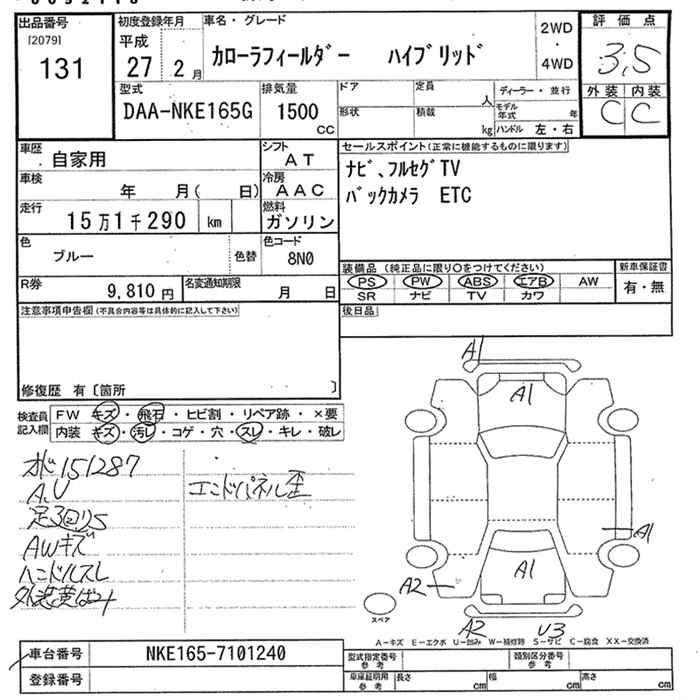 出品番号
[2079]
131
初度登録年月
平成
27 2月
車名・グレード
カローラフィールダー ハイブリッド
2WD
・
4WD
評価点
3.5
外装 内装
C C
型式
DAA-NKE165G
排気量
1500
CC
ドア
定員
人
形状
積載
kg
ディーラー・並行
モデル年式 年
ハンドル 左・右
車歴
自家用
シフト
AT
車検
年 月( 日)
冷房
AAC
走行
15万1千290 km
燃料
ガソリン
色
ブルー
色替
色コード
8N0
R券
9,810円
名変通知期限
月 日
セールスポイント(正常に機能するものに限ります)
ナビ、フルセグTV
バックカメラ ETC
装備品(純正品に限り○をつけてください)
PS PW ABS エアB AW
SR ナビ TV カワ
新車保証書
有・無
後日品
注意事項申告欄(不具合内容等は具体的に記入して下さい)
修復歴 有〔箇所 〕
検査員記入欄
FW キズ・飛石・ヒビ割・リペア跡・×要
内装 キズ・汚レ・コゲ・穴・スレ・キレ・破レ
オド151287
A,U
エンドパネル歪
AWキズ
ハンドルスレ
A1
A1
A1
A1
A2
A2
U3
スペア
A-キズ E-エクボ U-凹み W-補修跡 S-サビ C-腐食 XX-交換済
車台番号
NKE165-7101240
登録番号
型式指定番号
参考
類別区分番号
参考
車庫証明用
参考
長さ cm
幅 cm
高さ cm